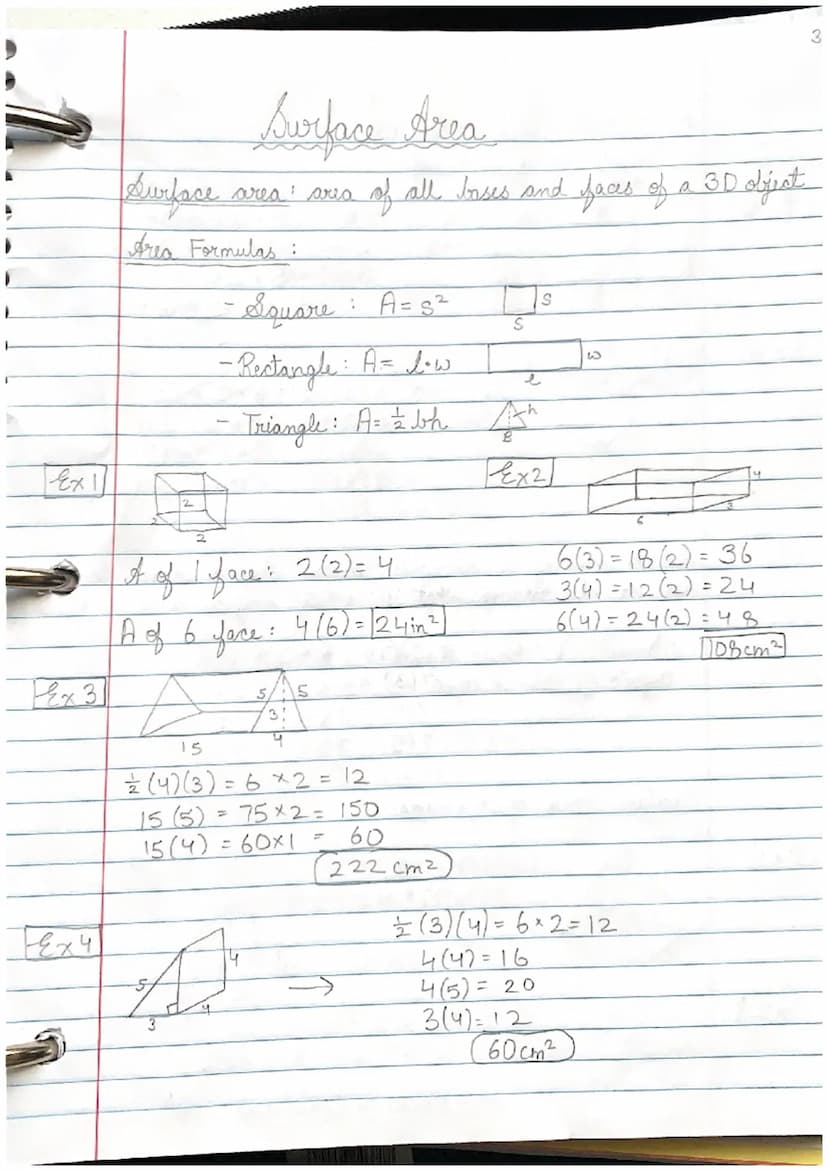 3
Surface Area
Surface area: area of all bases and faces of a 3D object
Area Formulas:
- Square: A = s² s
s
- Rectangle: A = l·w w
l
- Triangle: A = ½ bh h
B
Ex 1
2
2
2
A of 1 face: 2(2) = 4
A of 6 face: 4(6) = 24in²
Ex2
4
3
6
6(3) = 18(2) = 36
3(4) = 12(2) = 24
6(4) = 24(2) = 48
108cm²
Ex 3
5 5
3
15 4
½(4)(3) = 6 × 2 = 12
15(5) = 75×2 = 150
15(4) = 60×1 = 60
222 cm²
Ex 4
4
5
3 4
→
½(3)(4) = 6×2 = 12
4(4) = 16
4(5) = 20
3(4) = 12
60cm²